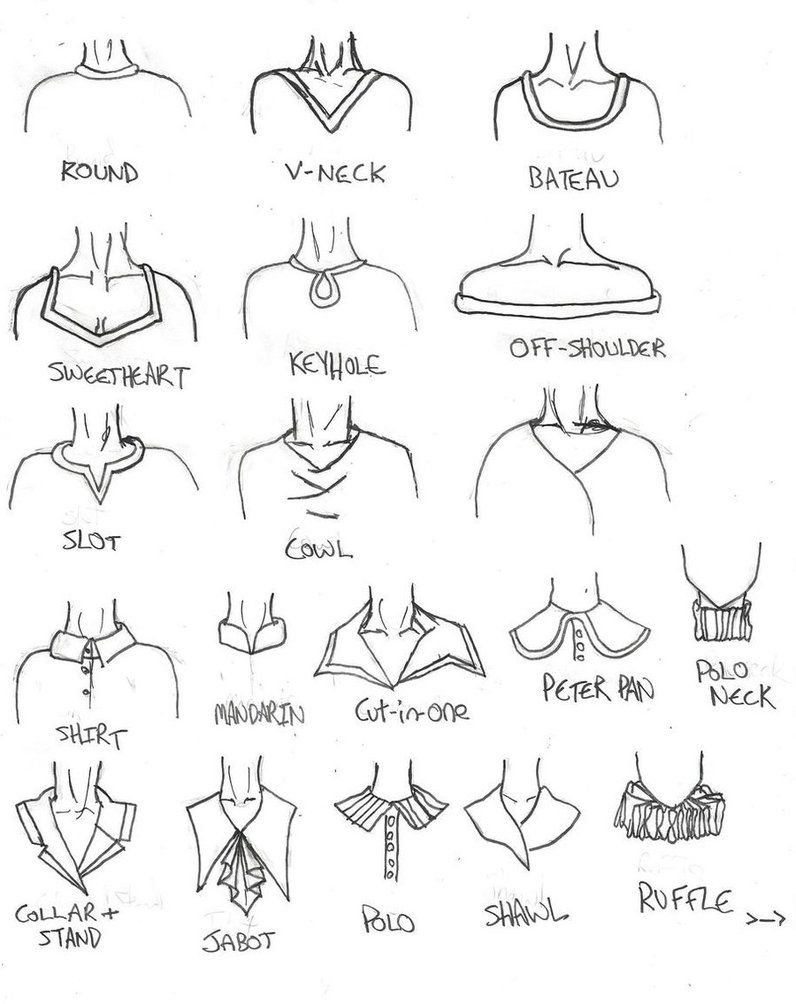 ROUND
V-NECK
BATEAU
SWEETHEART
KEYHOLE
OFF-SHOULDER
SLOT
COWL
SHIRT
MANDARIN
Cut-in-one
PETER PAN
POLO
NECK
COLLAR +
STAND
JABOT
POLO
SHAWL
RUFFLE
>—>